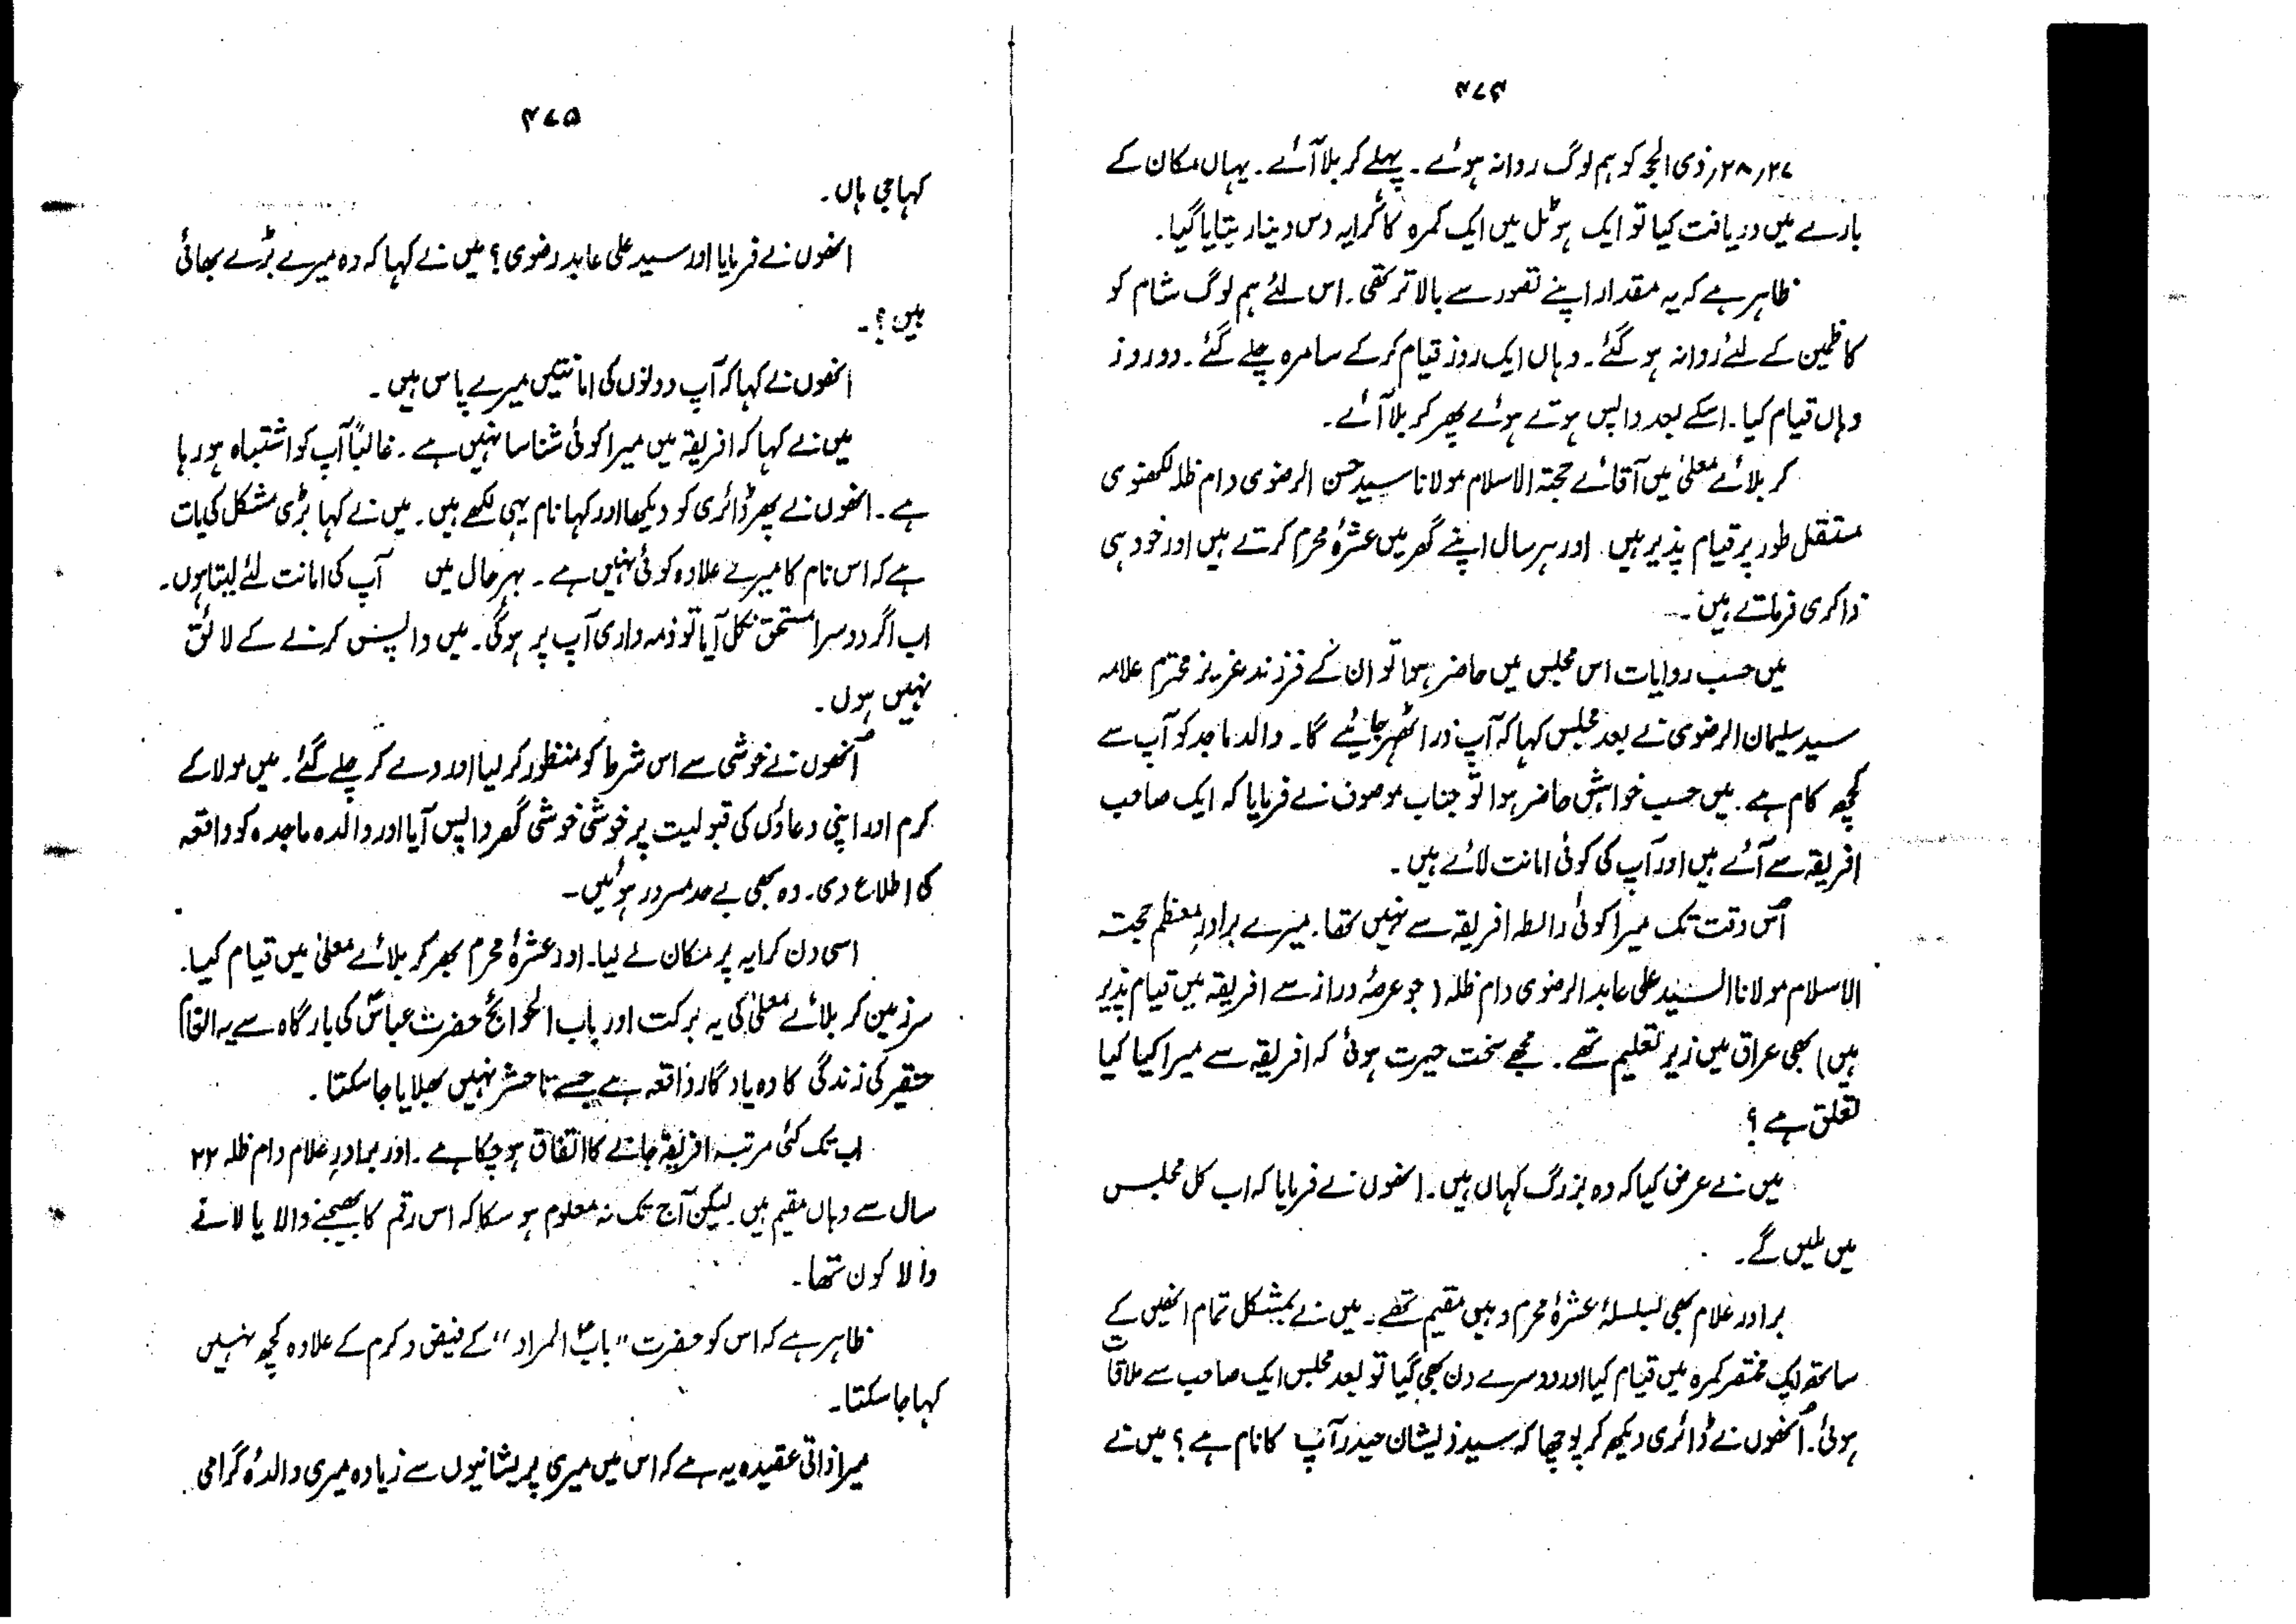 ۴۷۴
۲۷ر۲۸ر ذی الحجہ کو ہم لوگ روانہ ہوئے۔ پہلے کربلا آئے۔ یہاں مکان کے
بارے میں دریافت کیا تو ایک ہوٹل میں ایک کمرہ کا کرایہ دس دینار بتایا گیا۔
ظاہر ہے کہ یہ مقدار اپنے تصور سے بالاتر تھی۔ اس لئے ہم لوگ شام کو
کاظمین کے لئے روانہ ہو گئے۔ وہاں ایک روز قیام کرکے سامرہ چلے گئے۔ دو روز
وہاں قیام کیا۔ اسکے بعد واپس ہوتے ہوئے پھر کربلا آئے۔
کربلائے معلیٰ میں آقائے حجۃ الاسلام مولانا سید حسن الرضوی دام ظلہ لکھنوی
مستقل طور پر قیام پذیر ہیں اور ہر سال اپنے گھر میں عشرۂ محرم کرتے ہیں اور خود ہی
ذاکری فرماتے ہیں۔
میں حسب روایات اس مجلس میں حاضر ہوا تو ان کے فرزند عزیز محترم علامہ
سید سلیمان الرضوی نے بعد مجلس کہا کہ آپ ذرا ٹھہر جائیے گا۔ والد ماجد کو آپ سے
کچھ کام ہے۔ میں حسب خواہش حاضر ہوا تو جناب موصوف نے فرمایا کہ ایک صاحب
افریقہ سے آئے ہیں اور آپ کی کوئی امانت لائے ہیں۔
اُس وقت تک میرا کوئی رابطہ افریقہ سے نہیں تھا۔ میرے برادرِ معظم حجتہ
الاسلام مولانا السید علی عابد الرضوی دام ظلہ (جو عرصۂ دراز سے افریقہ میں قیام پذیر
ہیں) بھی عراق میں زیر تعلیم تھے۔ مجھے سخت حیرت ہوئی کہ افریقہ سے میرا کیا کیا
تعلق ہے؟
میں نے عرض کیا کہ وہ بزرگ کہاں ہیں۔ انھوں نے فرمایا کہ اب کل مجلس
میں ملیں گے۔
برادر علام بھی بسلسلۂ عشرۂ محرم وہیں مقیم تھے۔ میں نے بمشکل تمام انھیں کے
ساتھ ایک مختصر کمرہ میں قیام کیا اور دوسرے دن بھی گیا تو بعد مجلس ایک صاحب سے ملاقات
ہوئی۔ اُنھوں نے ڈائری دیکھ کر پوچھا کہ سید ذیشان حیدر آپ کا نام ہے؟ میں نے
۴۷۵
کہا جی ہاں۔
انھوں نے فرمایا اور سید علی عابد رضوی؟ میں نے کہا کہ وہ میرے بڑے بھائی
ہیں؟۔
انھوں نے کہا کہ آپ دونوں کی امانتیں میرے پاس ہیں۔
میں نے کہا کہ افریقہ میں میرا کوئی شناسا نہیں ہے۔ غالباً آپ کو اشتباہ ہو رہا
ہے۔ انھوں نے پھر ڈائری کو دیکھا اور کہا نام یہی لکھے ہیں۔ میں نے کہا بڑی مشکل کی بات
ہے کہ اس نام کا میرے علاوہ کوئی نہیں ہے۔ بہر حال میں آپ کی امانت لئے لیتا ہوں۔
اب اگر دوسرا مستحق نکل آیا تو ذمہ داری آپ پر ہوگی۔ میں واپس کرنے کے لائق
نہیں ہوں۔
اُنھوں نے خوشی سے اس شرط کو منظور کر لیا اور دے کر چلے گئے۔ میں مولا کے
کرم اور اپنی دعاؤں کی قبولیت پر خوشی خوشی گھر واپس آیا اور والدہ ماجدہ کو واقعہ
کی اطلاع دی۔ وہ بھی بے حد مسرور ہوئیں۔
اسی دن کرایہ پر مکان لے لیا۔ اور عشرۂ محرم بھر کربلائے معلیٰ میں قیام کیا۔
سرزمین کربلائے معلیٰ کی یہ برکت اور باب الحوائج حضرت عباسؑ کی بارگاہ سے یہ انعام
حقیر کی زندگی کا وہ یادگار واقعہ ہے جسے تا حشر نہیں بھلایا جا سکتا۔
اب تک کئی مرتبہ افریقہ جانے کا اتفاق ہو چکا ہے۔ اور برادرِ علام دام ظلہ ۲۲
سال سے وہاں مقیم ہیں۔ لیکن آج تک نہ معلوم ہو سکا کہ اس رقم کا بھیجنے والا یا لانے
والا کون تھا۔
ظاہر ہے کہ اس کو حضرت "بابؑ المراد" کے فیض و کرم کے علاوہ کچھ نہیں
کہا جا سکتا۔
میرا ذاتی عقیدہ یہ ہے کہ اس میں میری پریشانیوں سے زیادہ میری والدۂ گرامی